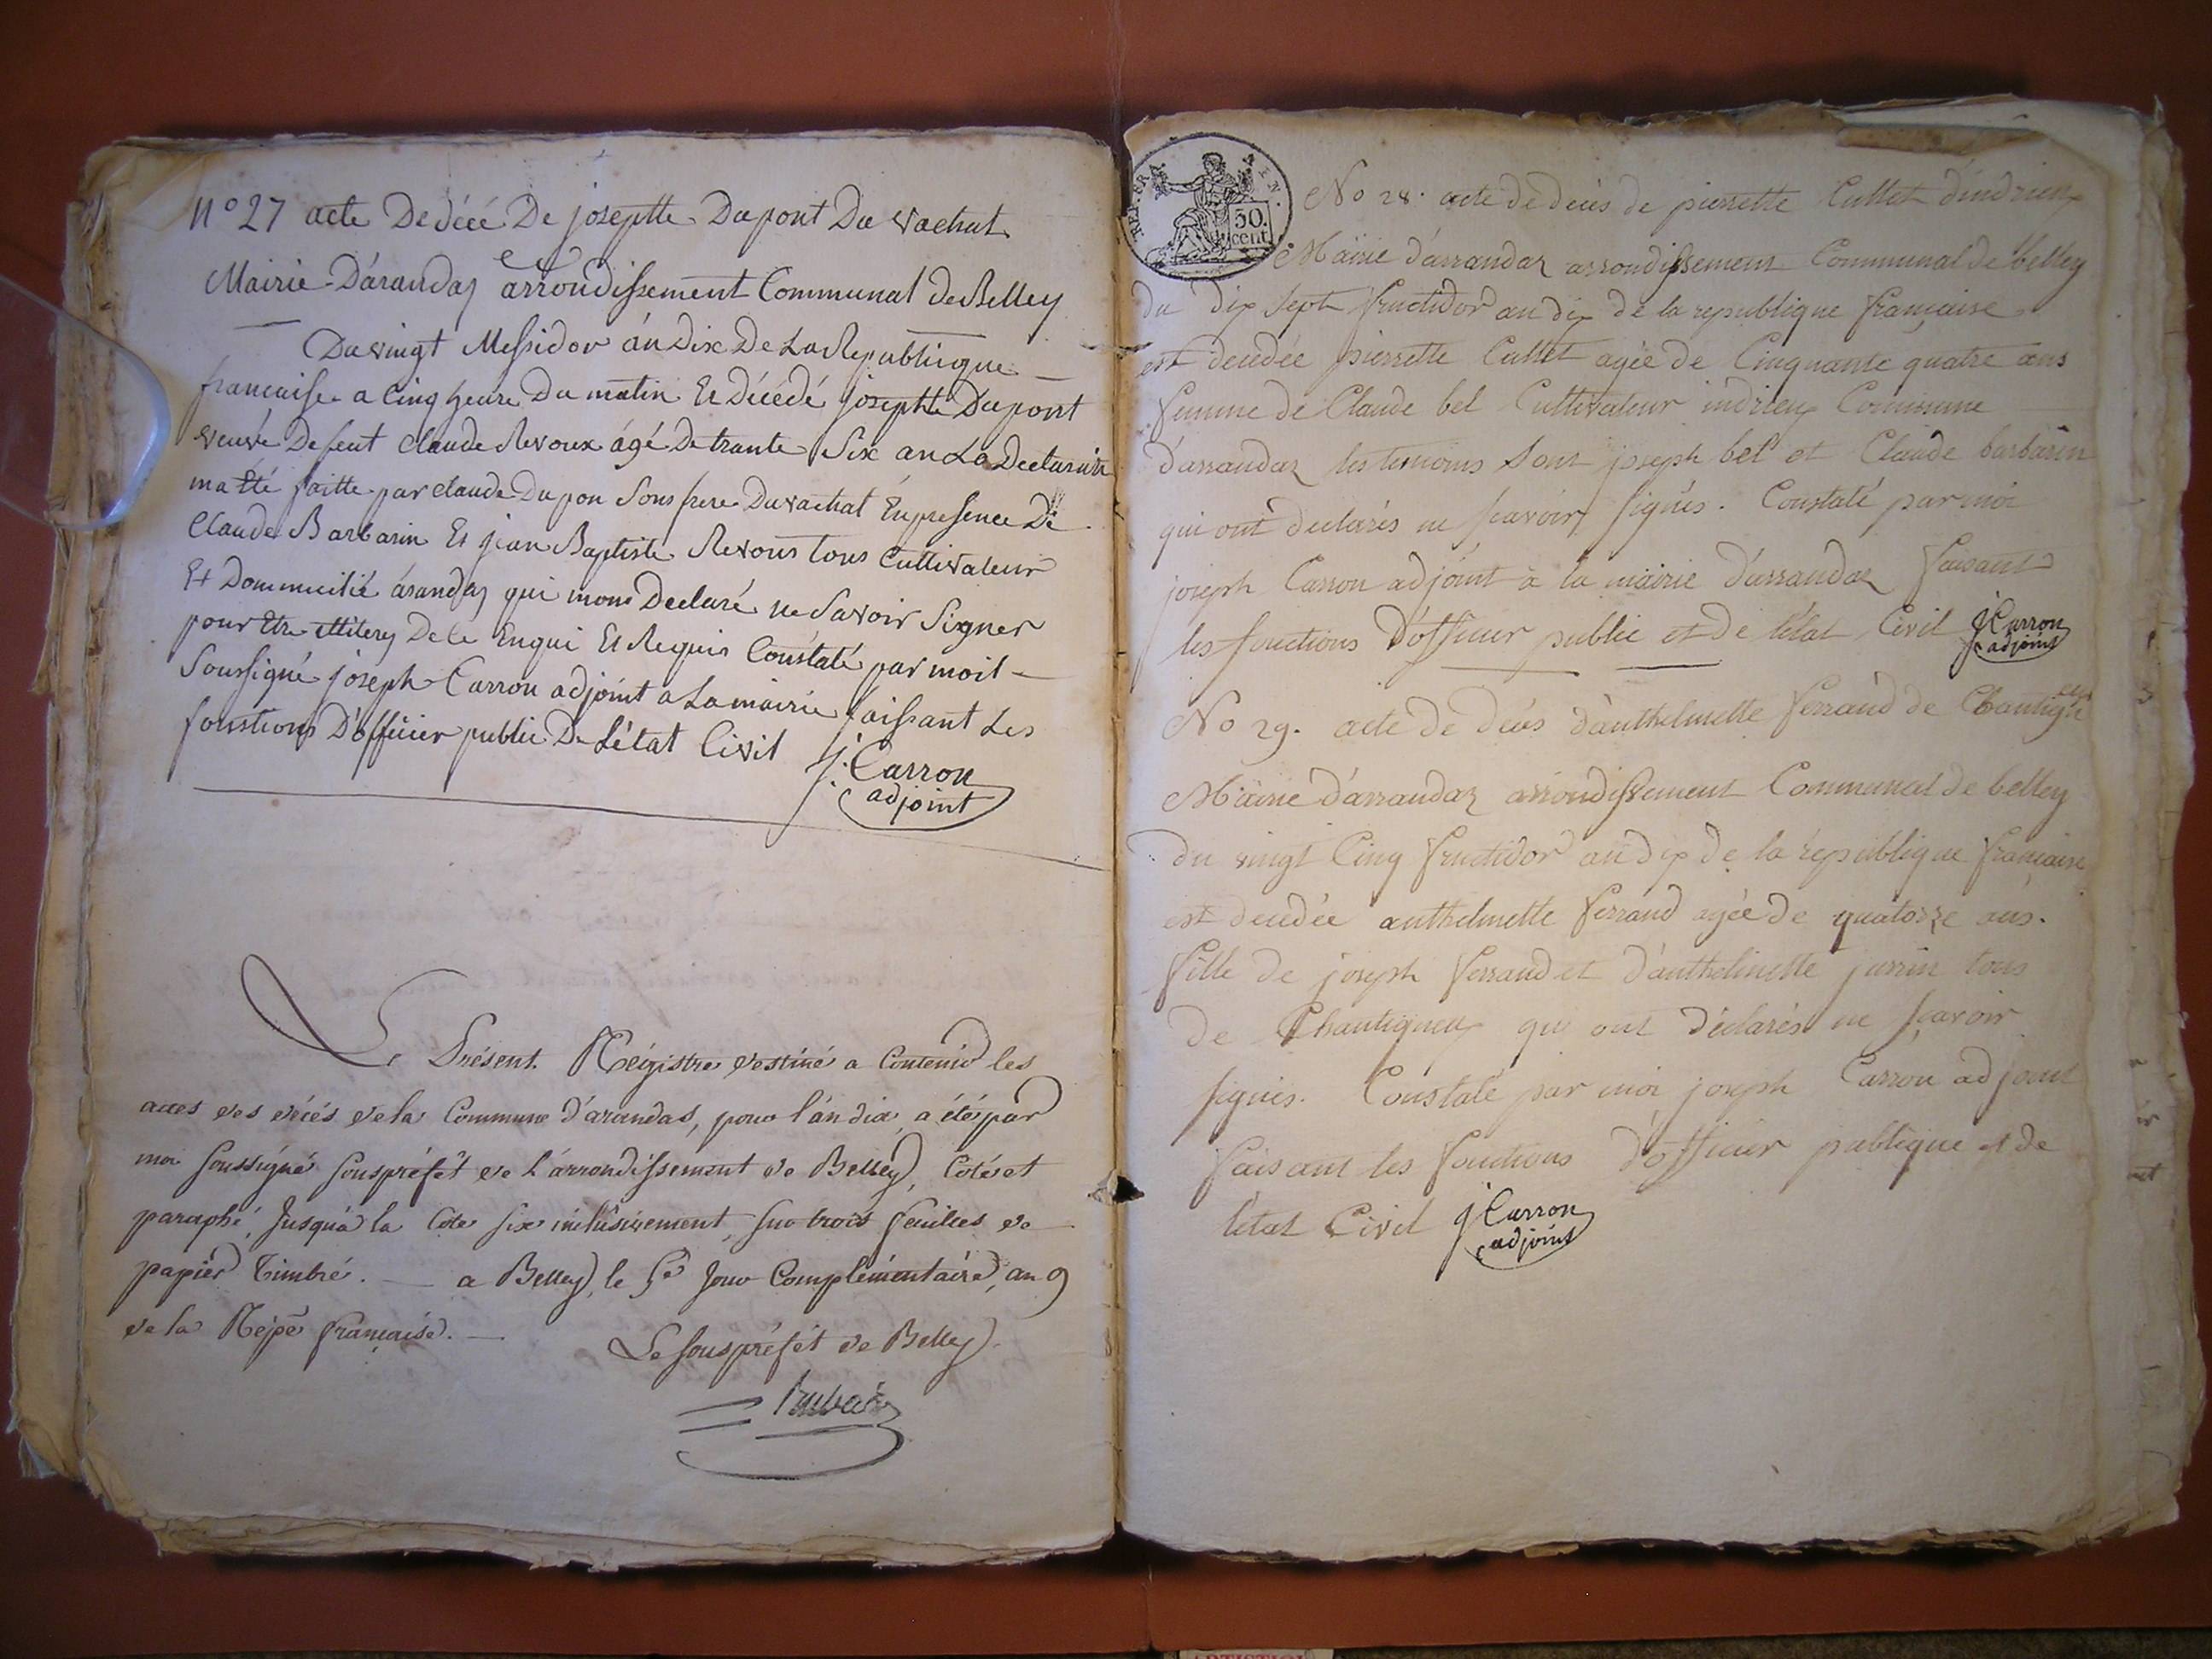 N° 27 acte De décé De josephtte Dupont Du vachat
Mairie D'arandas arrondissement Communal de Belley
Du vingt Messidor án Dix De La Republiuque
francaise a Cinq heure Du matin Et Décédé josephtte Dupont
veuve De feut Claude Revoux ágé De trante Six an La Declaration
ma été faitte par Claude Dupon Sons frere Du vachat En presence De
Claude Barbarin Et jean Baptiste Revous tous Cuttivateur
Et Dommicilié árandas qui mons Declaré ne Savoir Signer
pour Etre De ce Enqui Et Requis Constaté par moit
Soussigné joseph Carron adjoint a La mairie faissant Les
fonstions D'officier public De L'état Civil
j. Carron
adjoint
Le Présent Régistre destiné a Contenir les
actes des décés de la Commune d'arandas, pour l'an dix, a été par
moi soussigné souspréfêt de l'arrondissement de Belley, Coté et
paraphé, Jusqu'a la Cote six inclusivement, sur trois feuilles de
papier Timbré. — a Belley, le 5e Jour Complémentaire, an 9
de la Répe française. —
Le souspréfet de Belley
REP. FRA
50.
cent
No 28. acte de décès de pierrette Cullet d'indrieux
Mairie d'arrandaz arrondissement Communal de belley
du dix sept fructidor an dix de la republique française
est decédée pierrette Cullet agée de Cinquante quatre ans
femme de Claude bel Cultivateur indrieux Commune
d'arrandaz les temoins sont joseph bel et Claude barbarin
qui ont declarés ne scavoir signés. Constaté par moi
joseph Carron adjoint à la mairie d'arrandaz faisant
les fonctions d'officier public et de l'état Civil j Carron
adjoint
No 29. acte de décès d'anthelmette ferrand de Chantigneux
Mairie d'arrandaz arrondissement Communal de belley
du vingt Cinq fructidor an dix de la republique francaise
est decedée anthelmette ferrand agée de quatorze ans.
fille de joseph ferrand et d'anthelmette jurrin tous
de Chantigneux qui ont déclarés ne scavoir
signés. Constaté par moi joseph Carron adjoint
faisant les fonctions d'officier publique et de
létat Civil j Carron
adjoint